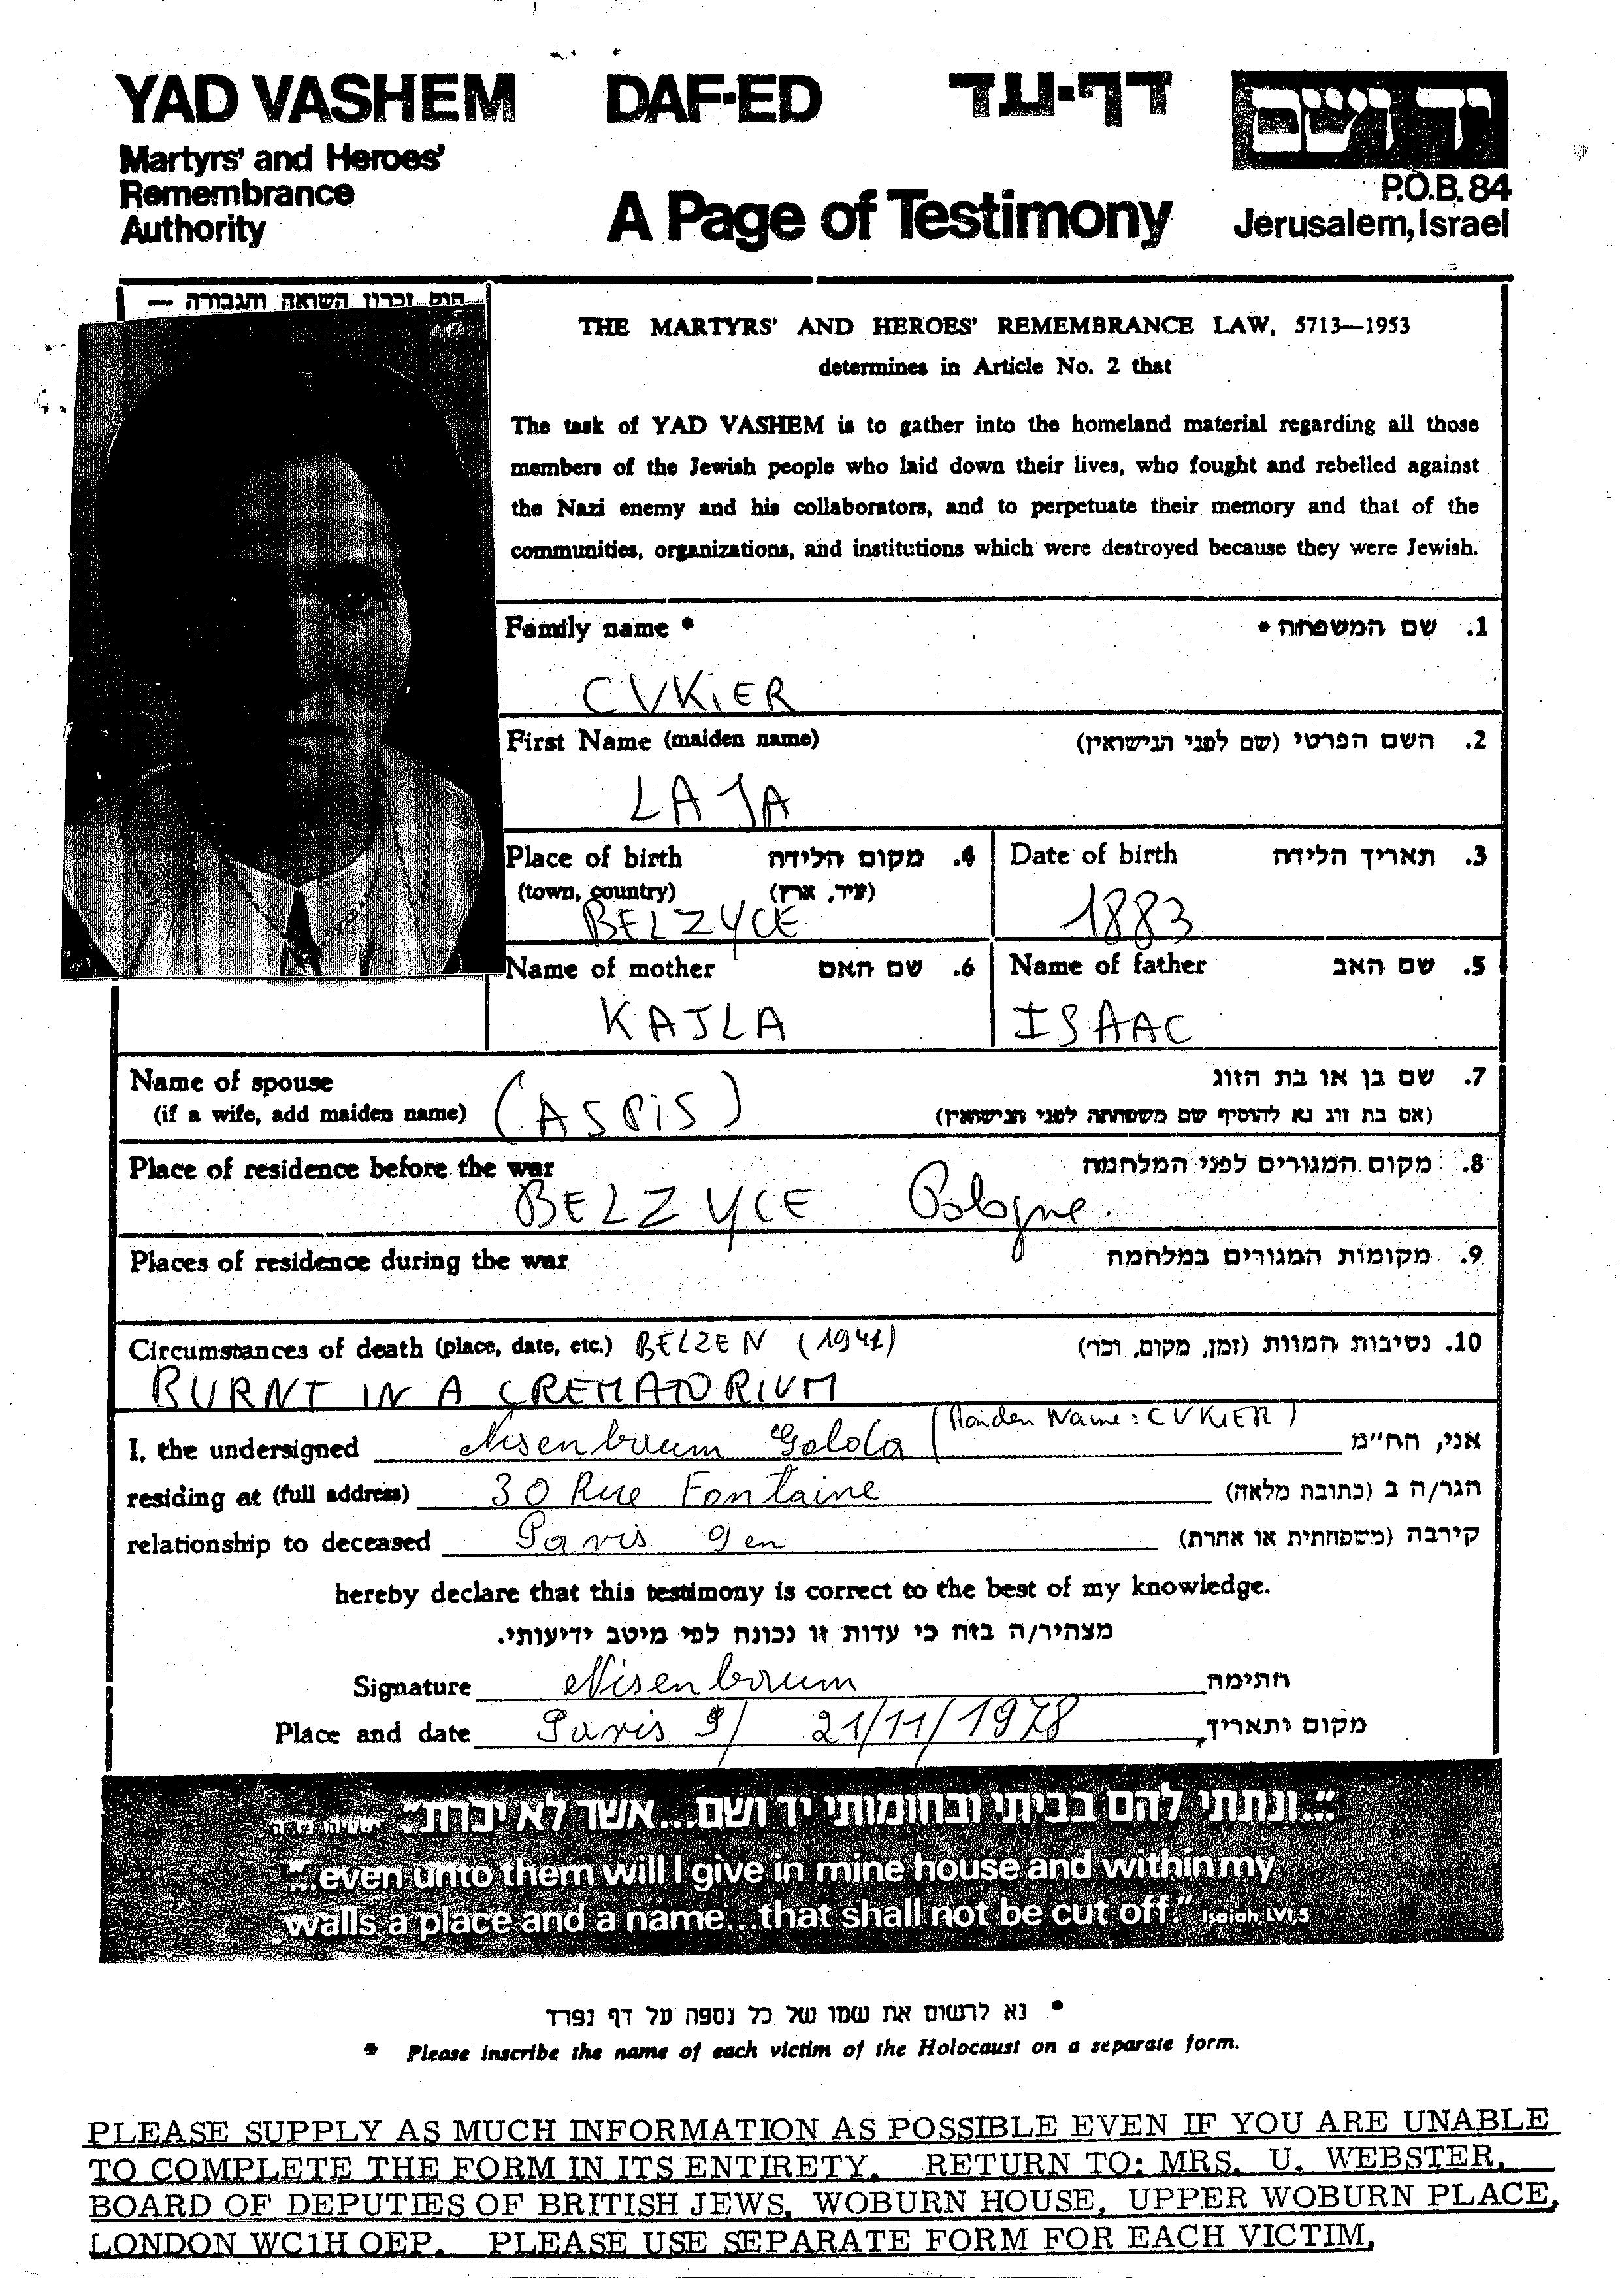 YAD VASHEM DAF-ED דף-עד יד ושם
Martyrs' and Heroes'
Remembrance
Authority
A Page of Testimony
P.O.B. 84
Jerusalem, Israel
חוק זכרון השואה והגבורה —
THE MARTYRS' AND HEROES' REMEMBRANCE LAW, 5713—1953
determines in Article No. 2 that
The task of YAD VASHEM is to gather into the homeland material regarding all those
members of the Jewish people who laid down their lives, who fought and rebelled against
the Nazi enemy and his collaborators, and to perpetuate their memory and that of the
communities, organizations, and institutions which were destroyed because they were Jewish.
Family name * 1. שם המשפחה *
CUKiER
First Name (maiden name) 2. השם הפרטי (שם לפני הנישואין)
LAJA
Place of birth 4. מקום הלידה
(town, country) (עיר, ארץ)
BELZYCE
Date of birth 3. תאריך הלידה
1883
Name of mother 6. שם האם
KAJLA
Name of father 5. שם האב
ISAAC
Name of spouse 7. שם בן או בת הזוג
(if a wife, add maiden name) (ASPiS) (אם בת זוג נא להוסיף שם משפחתה לפני הנישואין)
Place of residence before the war 8. מקום המגורים לפני המלחמה
BELZYCE Pologne.
Places of residence during the war 9. מקומות המגורים במלחמה
Circumstances of death (place, date, etc.) BELZEN (1941) 10. נסיבות המוות (זמן, מקום, וכו')
BURNT IN A CREMATORIUM
(Maiden Name: CUKiER)
I, the undersigned Nisenbaum Golda אני, הח"מ
residing at (full address) 30 Rue Fontaine הגר/ה ב (כתובת מלאה)
relationship to deceased Paris 9en קירבה (משפחתית או אחרת)
hereby declare that this testimony is correct to the best of my knowledge.
מצהיר/ה בזה כי עדות זו נכונה לפי מיטב ידיעותי.
Signature Nisenbaum חתימה
Place and date Paris 9/ 21/11/1978 מקום ותאריך
"...ונתתי להם בביתי ובחומותי יד ושם...אשר לא יכרת" ישעיהו נ"ו ה
"...even unto them will I give in mine house and within my
walls a place and a name...that shall not be cut off." Isaiah, LVI, 5
* נא לרשום את שמו של כל נספה על דף נפרד
* Please inscribe the name of each victim of the Holocaust on a separate form.
PLEASE SUPPLY AS MUCH INFORMATION AS POSSIBLE EVEN IF YOU ARE UNABLE
TO COMPLETE THE FORM IN ITS ENTIRETY. RETURN TO: MRS. U. WEBSTER,
BOARD OF DEPUTIES OF BRITISH JEWS, WOBURN HOUSE, UPPER WOBURN PLACE,
LONDON WC1H OEP. PLEASE USE SEPARATE FORM FOR EACH VICTIM.